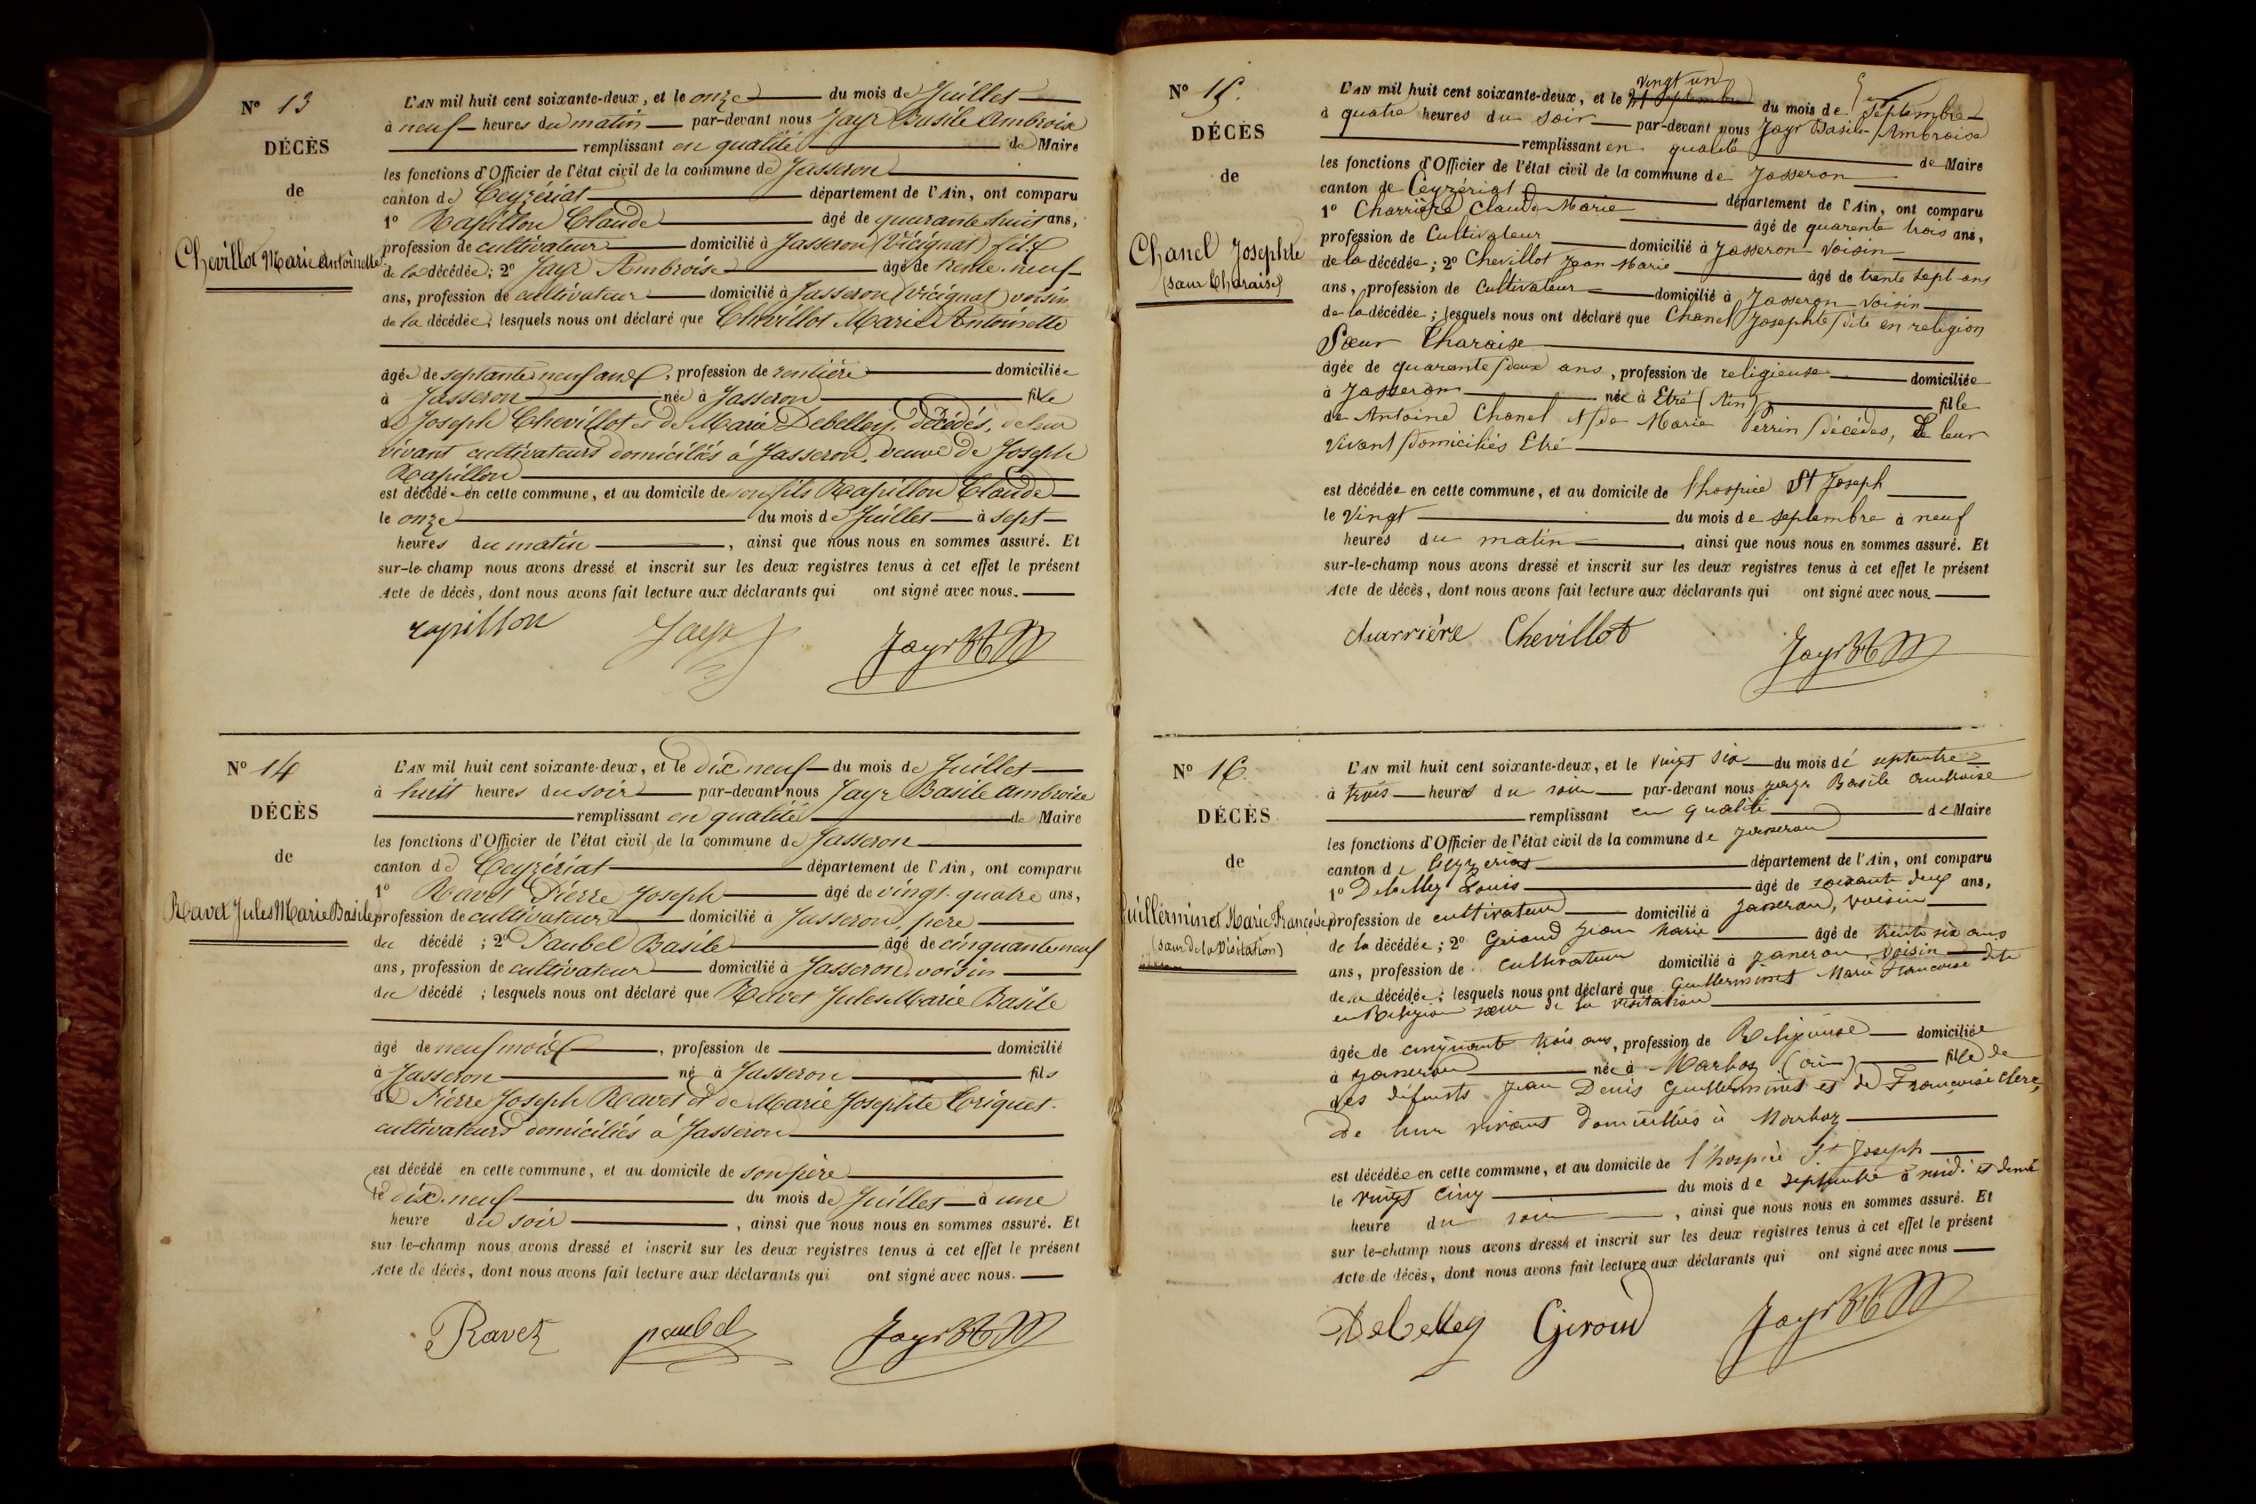 N° 13
DÉCÈS
de
Chevillot Marie Antoinette
L'AN mil huit cent soixante-deux, et le onze du mois de Juillet
à neuf heures du matin par-devant nous Jayr Basile Ambroise
remplissant en qualité de Maire
les fonctions d'Officier de l'état civil de la commune de Jasseron
canton de Ceyzériat département de l'Ain, ont comparu
1° Rapillon Claude âgé de quarante huit ans,
profession de cultivateur domicilié à Jasseron (Vicignat) fils
de la décédée; 2° Jayr Ambroise âgé de trente neuf
ans, profession de cultivateur domicilié à Jasseron (Vicignat) voisin
de la décédée; lesquels nous ont déclaré que Chevillot Marie Antoinette
âgée de septante neuf ans, profession de rentière domiciliée
à Jasseron née à Jasseron fille
de Joseph Chevillot et de Marie Debelley, décédés, de leur
vivant cultivateurs domiciliés à Jasseron, veuve de Joseph
Rapillon
est décédée en cette commune, et au domicile de son fils Rapillon Claude
le onze du mois de Juillet à sept
heures du matin, ainsi que nous nous en sommes assuré. Et
sur-le-champ nous avons dressé et inscrit sur les deux registres tenus à cet effet le présent
Acte de décès, dont nous avons fait lecture aux déclarants qui ont signé avec nous.
rapillon Jayr Jayr
N° 14
DÉCÈS
de
Ravet Jules Marie Basile
L'AN mil huit cent soixante-deux, et le dix neuf du mois de Juillet
à huit heures du soir par-devant nous Jayr Basile Ambroise
remplissant en qualité de Maire
les fonctions d'Officier de l'état civil de la commune de Jasseron
canton de Ceyzériat département de l'Ain, ont comparu
1° Ravet Pierre Joseph âgé de vingt-quatre ans,
profession de cultivateur domicilié à Jasseron, père
du décédé; 2° Paubel Basile âgé de cinquante neuf
ans, profession de cultivateur domicilié à Jasseron voisin
du décédé; lesquels nous ont déclaré que Ravet Jules Marie Basile
âgé de neuf mois, profession de domicilié
à Jasseron né à Jasseron fils
de Pierre Joseph Ravet et de Marie Josephte Criquet
cultivateurs domiciliés à Jasseron
est décédé en cette commune, et au domicile de son père
le dix-neuf du mois de Juillet à une
heure du soir, ainsi que nous nous en sommes assuré. Et
sur-le-champ nous avons dressé et inscrit sur les deux registres tenus à cet effet le présent
Acte de décès, dont nous avons fait lecture aux déclarants qui ont signé avec nous.
Ravet paubel Jayr
N° 15.
DÉCÈS
de
Chanel Josephte
(sœur Tharaise)
vingt un
L'AN mil huit cent soixante-deux, et le du mois de Septembre
à quatre heures du soir par-devant nous Jayr Basile-Ambroise
remplissant en qualité de Maire
les fonctions d'Officier de l'état civil de la commune de Jasseron
canton de Ceyzériat département de l'Ain, ont comparu
1° Charrière Claude Marie âgé de quarente trois ans,
profession de Cultivateur domicilié à Jasseron voisin
de la décédée; 2° Chevillot Jean-Marie âgé de trente sept ans
ans, profession de Cultivateur domicilié à Jasseron voisin
de la décédée; lesquels nous ont déclaré que Chanel Josephte dite en religion
Sœur Tharaise
âgée de quarente deux ans, profession de religieuse domiciliée
à Jasseron née à Etré (Ain) fille
de Antoine Chanel et de Marie Perrin décédés, de leur
vivant domiciliés Etré
est décédée en cette commune, et au domicile de l'hospice St Joseph
le Vingt du mois de septembre à neuf
heures du matin, ainsi que nous nous en sommes assuré. Et
sur-le-champ nous avons dressé et inscrit sur les deux registres tenus à cet effet le présent
Acte de décès, dont nous avons fait lecture aux déclarants qui ont signé avec nous.
charrière Chevillot Jayr
N° 16
DÉCÈS
de
Guillerminet Marie Françoise
(sœur de la Visitation)
L'AN mil huit cent soixante-deux, et le vingt six du mois de septembre
à trois heures du soir par-devant nous Jayr Basile ambroise
remplissant en qualité de Maire
les fonctions d'Officier de l'état civil de la commune de Jasseron
canton de Ceyzeriat département de l'Ain, ont comparu
1° Debelley Louis âgé de soixante deux ans,
profession de cultivateur domicilié à Jasseron, voisin
de la décédée; 2° Giroud Jean Marie âgé de trente six ans
ans, profession de cultivateur domicilié à Jasseron voisin
de la décédée; lesquels nous ont déclaré que Guillerminet Marie Françoise dite
en Religion sœur de la visitation
âgée de cinquante trois ans, profession de Religieuse domiciliée
à Jasseron née à Marboz (ain) fille de
des défunts Jean Denis Guillerminet et de Françoise Clerc,
de leur vivant domiciliés à Marboz
est décédée en cette commune, et au domicile de l'hospice St Joseph
le vingt cinq du mois de septembre à midi et demi
heure du soir, ainsi que nous nous en sommes assuré. Et
sur le-champ nous avons dressé et inscrit sur les deux registres tenus à cet effet le présent
Acte de décès, dont nous avons fait lecture aux déclarants qui ont signé avec nous
Debelley Giroud Jayr